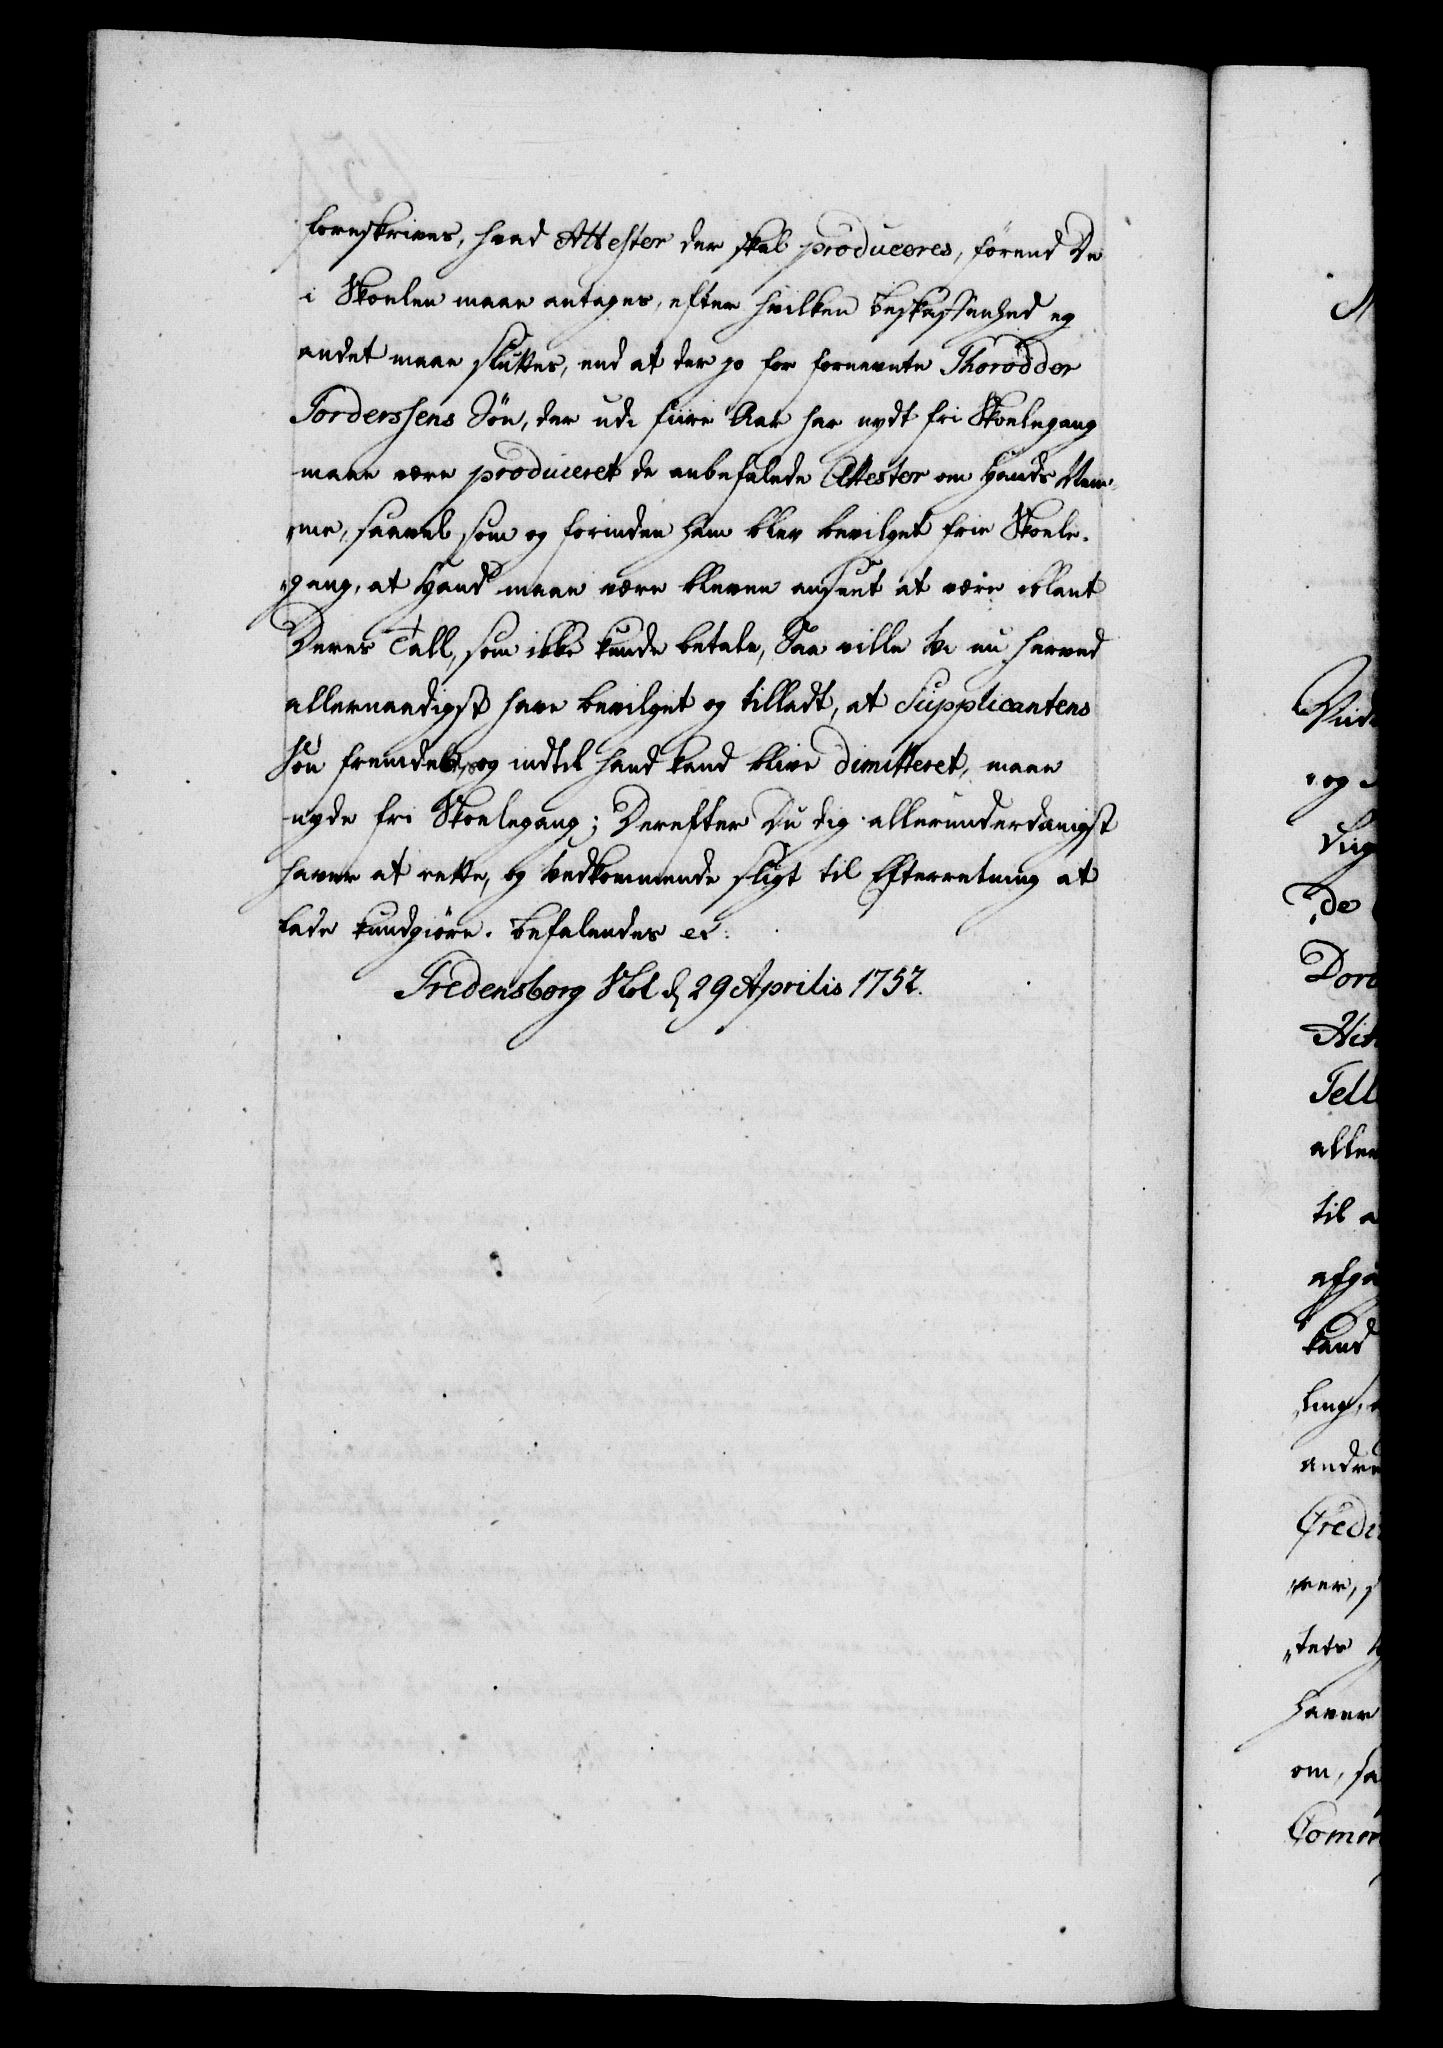 foreskrives, hvad Attester der skal produceres, förend De
i Skoelen maae antages, efter hvilken Beskaffenhed ey
andet maae sluttes, end at der jo for fornevnte Thorodder
Torderssens Sön, der udi fiire Aar har nydt fri Skoelegang
maae være produceret de anbefalede Attester om Hands Nem-
„me, saavel som og forinden ham blev bevilget frie Skoele-
„gang, at Hand maae være bleven anseet at være iblant
Deres Tall, som ikke kunde betale, Saa ville Vi nu herved
allernaadigst have bevilget og tilladt, at Supplicantens
Sön fremdeles, og indtil hand kand blive dimitteret, maae
nyde fri Skoelegang; Derefter Du dig allerunderdanigst
haver at rette, og Vedkommende sligt til Efterretning at
lade kundgiöre. Befalendes etc:
Fredensborg Slot d. 29 Aprilis 1752.
Vide
„og
Sup
„de
Doro
Hin
Tell
aller
til a
afga
kand
„ling,
andre
Credi
„ver,
„tets
haver
om, sa
Comm